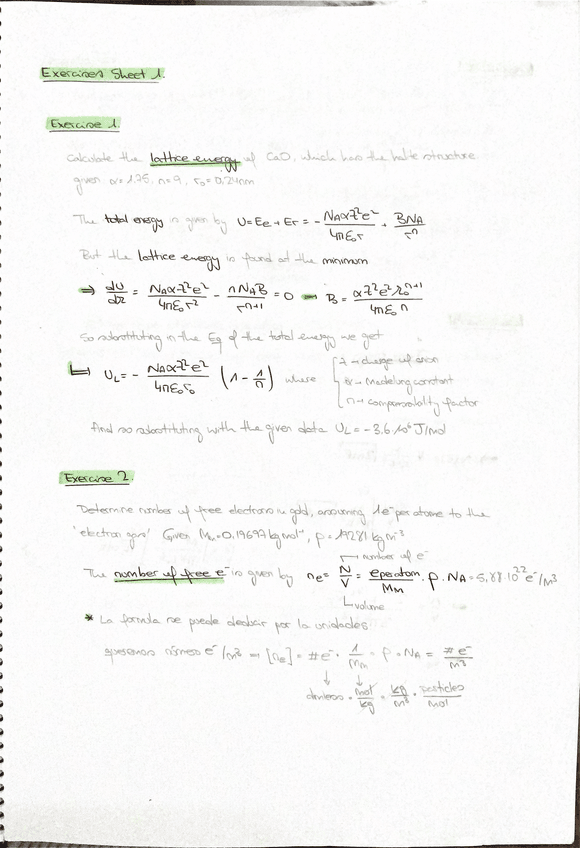 Exercises Sheet 1.
Exercise 1.
Calculate the lattice energy of CaO, which has the halite structure
given α=1.75, n=9, r₀=0.24nm
The total energy is given by U=Ee+Er = - NAαZ²e²/4πε₀r + BNA/rⁿ
But the lattice energy is found at the minimum
⇒ dU/dr = NAαZ²e²/4πε₀r² - nNAB/rⁿ⁺¹ = 0 → B = αZ²e²r₀ⁿ⁺¹/4πε₀n
So substituting in the Eq of the total energy we get
↳ UL = - NAαZ²e²/4πε₀r₀ (1 - 1/n) where
Z → charge of anion
α → Madelung constant
n → compressibility factor
And so substituting with the given data UL = -3.6·10⁶ J/mol
Exercise 2.
Determine number of free electrons in gold, assuming 1e⁻ per atom to the
'electron gas' Given MM=0,19697 kg mol⁻¹, ρ=19281 kg m⁻³
number of e⁻
The number of free e⁻ is given by ne = N/V = e per atom/MM · ρ · NA = 5,89·10²² e⁻/m³
volume
* La formula se puede deducir por la unidades.
queremos número e⁻/m³ → [ne] = #e⁻ · 1/MM · ρ · NA = #e⁻/m³
dimless · mol/kg · kg/m³ · particles/mol